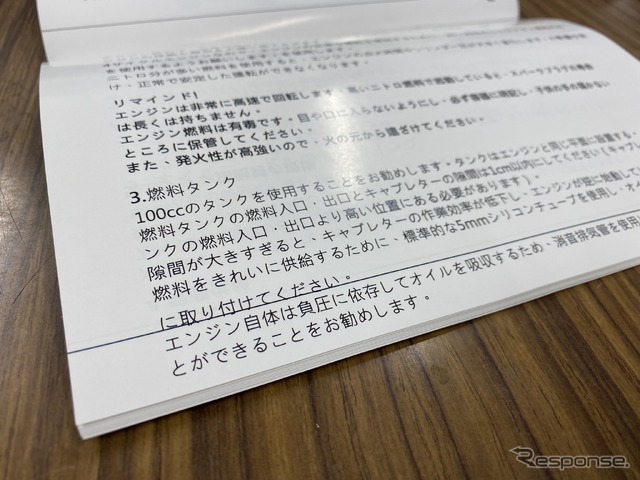 け、正常で安定した運転ができなくなります。
リマインド!
エンジンは非常に高速で回転します。高いニトロ燃料で運転していると、スパークプラグの寿命
は長くは持ちません。
エンジン燃料は有毒です。目や口に入らないようにし、必ず容器に明記し、子供の手の届かない
ところに保管してください。
また、発火性が高強いので、火の元から遠ざけてください。
3.燃料タンク
100ccのタンクを使用することをお勧めします。タンクはエンジンと同じ平面に設置する。
燃料タンクの燃料入口・出口とキャブレターの隙間は1cm以内にしてください(キャブ
ンクの燃料入口・出口より高い位置にある必要があります)。
隙間が大きすぎると、キャブレターの作業効率が低下し、エンジンが逆に始動し
燃料をきれいに供給するために、標準的な5mmシリコンチューブを使用し、
に取り付けてください。
エンジン自体は負圧に依存してオイルを吸収するため、消音排気管を使用
とができることをお勧めします。
Response.